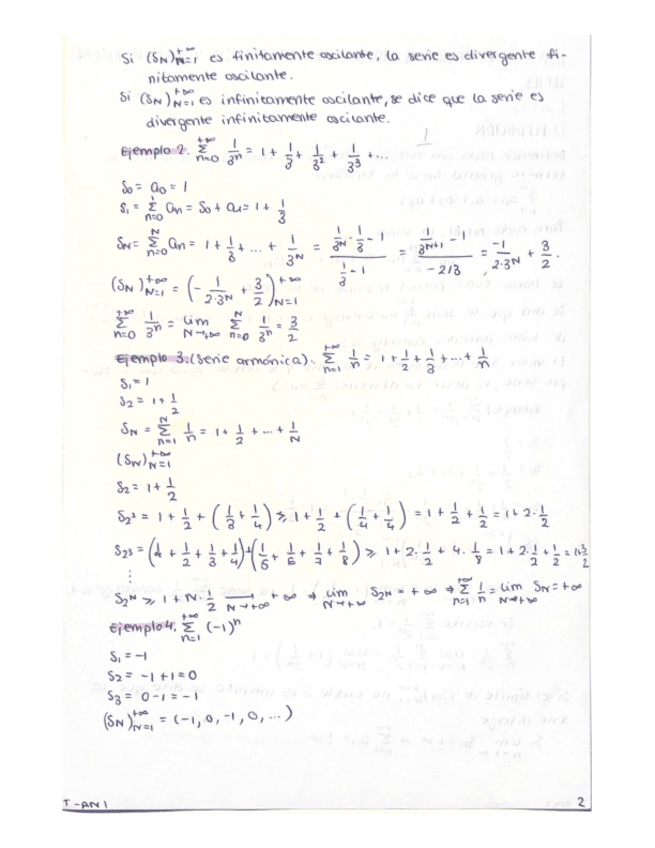 Si (S_N)_{N=1}^{+∞} es finitamente oscilante, la serie es divergente fi-
nitamente oscilante.
Si (S_N)_{N=1}^{+∞} es infinitamente oscilante, se dice que la serie es
divergente infinitamente oscilante.
Ejemplo 2. ∑_{n=0}^{+∞} 1/3^n = 1 + 1/3 + 1/3^2 + 1/3^3 + ...
S_0 = a_0 = 1
S_1 = ∑_{n=0}^{1} a_n = S_0 + a_1 = 1 + 1/3
S_N = ∑_{n=0}^{N} a_n = 1 + 1/3 + ... + 1/3^N = (1/3^N · 1/3 - 1)/(1/3 - 1) = (1/3^{N+1} - 1)/(-2/3) = -1/(2·3^N) + 3/2.
(S_N)_{N=1}^{+∞} = (-1/(2·3^N) + 3/2)_{N=1}^{+∞}
∑_{n=0}^{+∞} 1/3^n = lim_{N→+∞} ∑_{n=0}^{N} 1/3^n = 3/2
Ejemplo 3. (Serie armónica). ∑_{n=1}^{+∞} 1/n = 1 + 1/2 + 1/3 + ... + 1/n
S_1 = 1
S_2 = 1 + 1/2
S_N = ∑_{n=1}^{N} 1/n = 1 + 1/2 + ... + 1/N
(S_N)_{N=1}^{+∞}
S_2 = 1 + 1/2
S_{2^2} = 1 + 1/2 + (1/3 + 1/4) ≥ 1 + 1/2 + (1/4 + 1/4) = 1 + 1/2 + 1/2 = 1 + 2·1/2
S_{2^3} = (1 + 1/2 + 1/3 + 1/4) + (1/5 + 1/6 + 1/7 + 1/8) ≥ 1 + 2·1/2 + 4·1/8 = 1 + 2·1/2 + 1/2 = 1+3/2
⋮
S_{2^N} ≥ 1 + N·1/2 →_{N→+∞} +∞ ⇒ lim_{N→+∞} S_{2^N} = +∞ ⇒ ∑_{n=1}^{+∞} 1/n = lim_{N→+∞} S_N = +∞
Ejemplo 4. ∑_{n=1}^{+∞} (-1)^n
S_1 = -1
S_2 = -1 + 1 = 0
S_3 = 0 - 1 = -1
(S_N)_{N=1}^{+∞} = (-1, 0, -1, 0, ...)
T-AN1 2